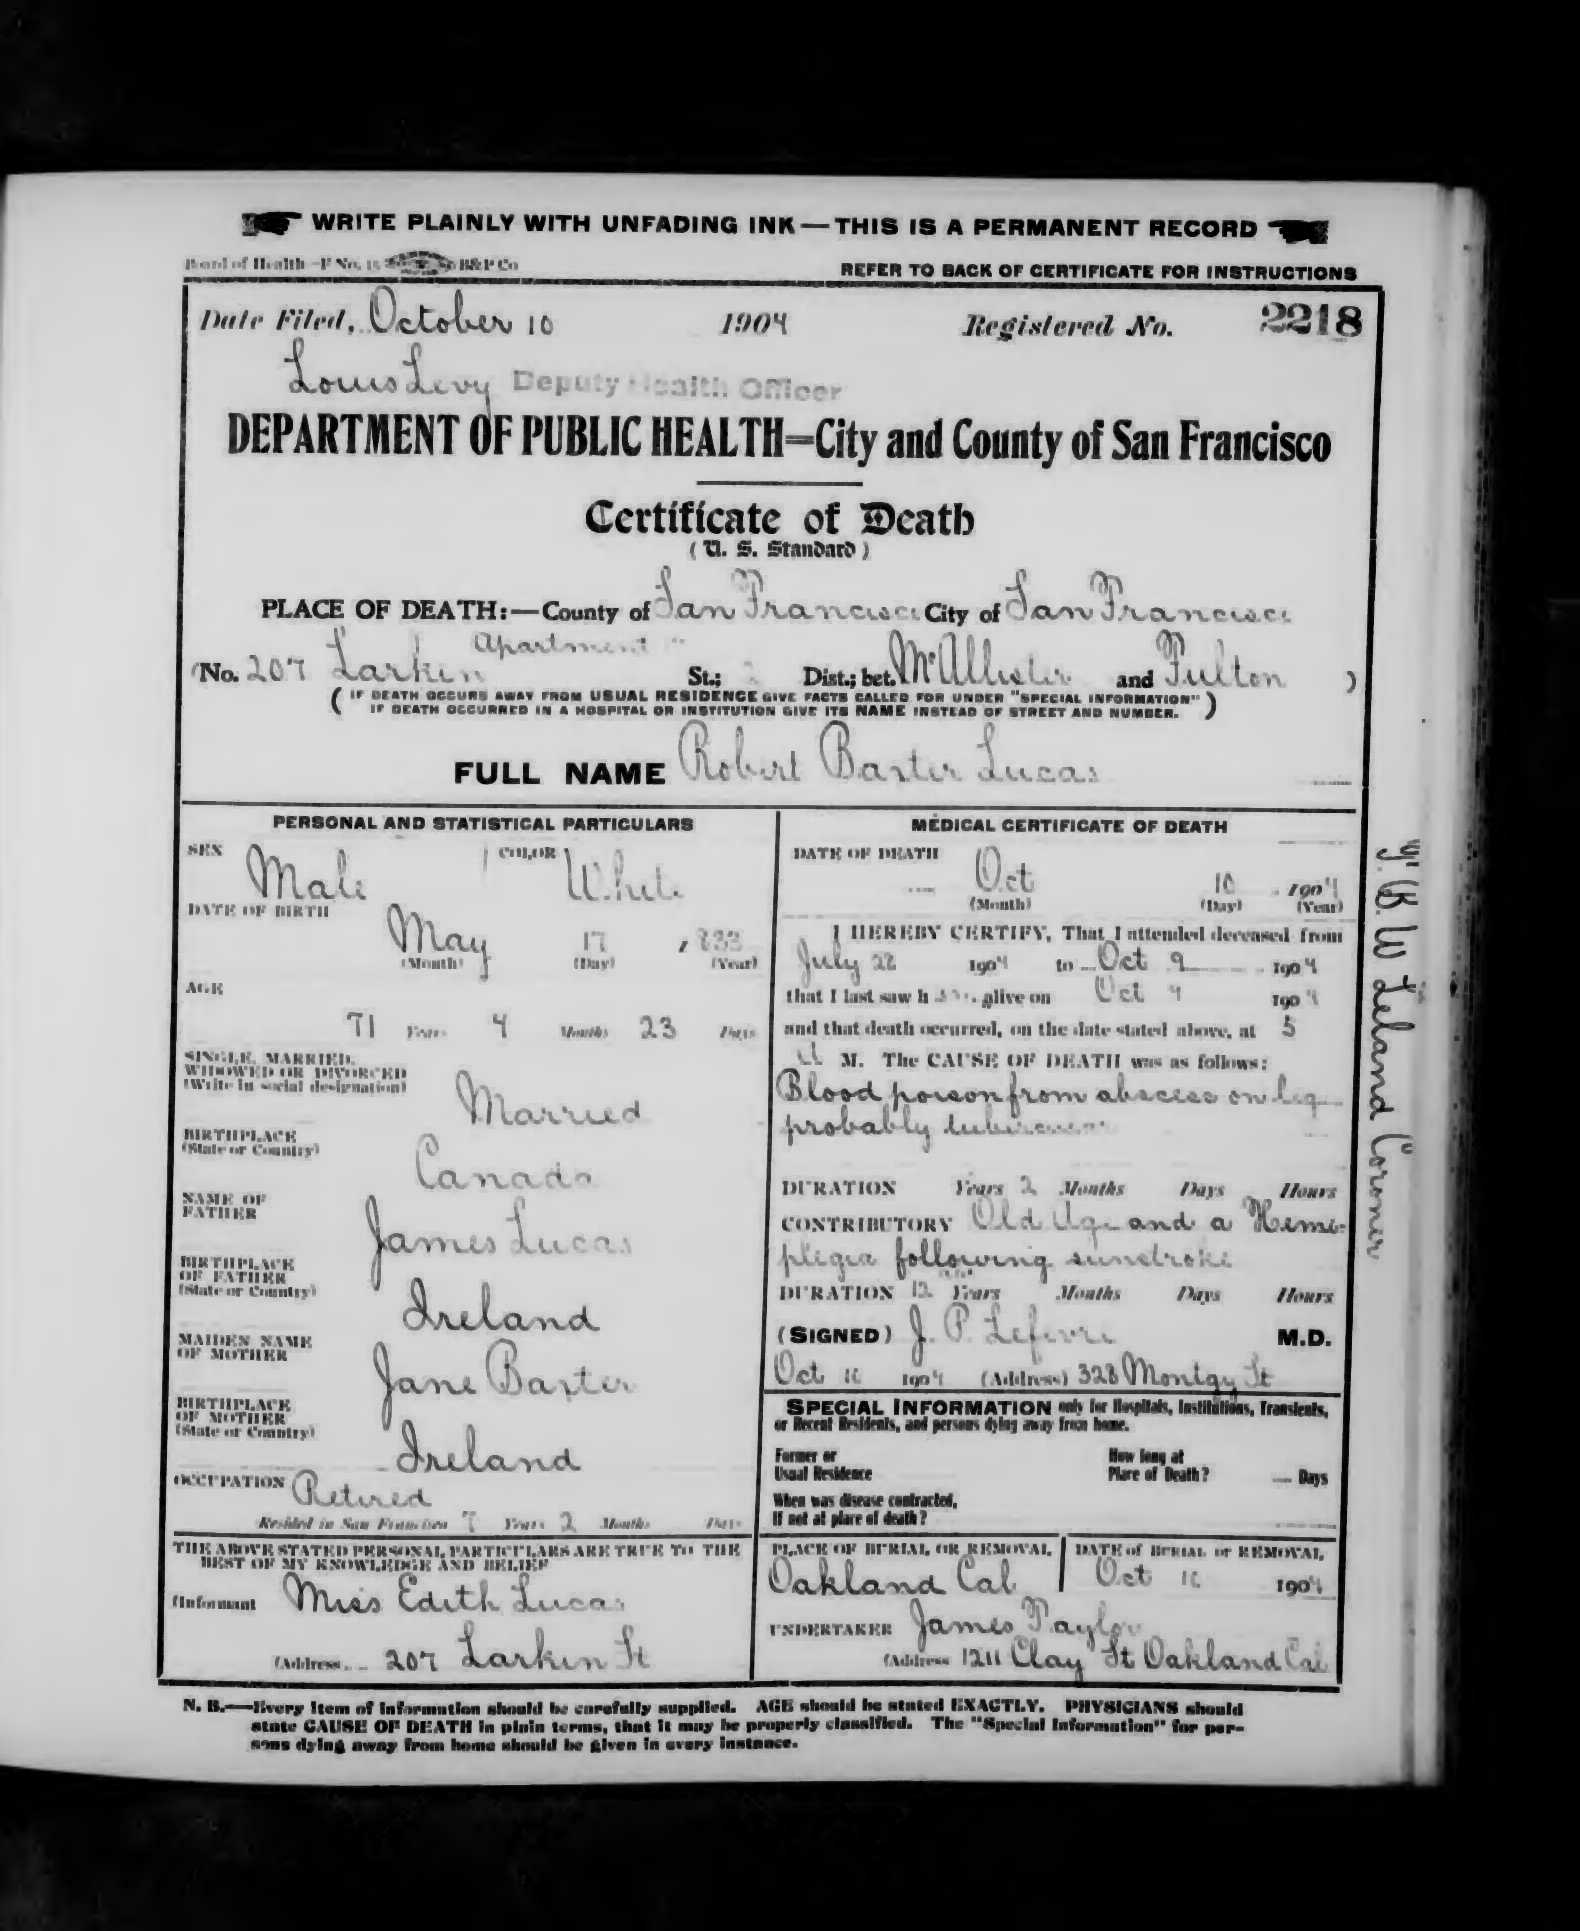 WRITE PLAINLY WITH UNFADING INK—THIS IS A PERMANENT RECORD
Board of Health—F No. 15 B&P Co
REFER TO BACK OF CERTIFICATE FOR INSTRUCTIONS
Date Filed, October 10 1904 Registered No. 2218
Louis Levy Deputy Health Officer
DEPARTMENT OF PUBLIC HEALTH=City and County of San Francisco
Certificate of Death
(U. S. Standard)
PLACE OF DEATH:—County of San Francisco City of San Francisco
Apartment
(No. 207 Larkin St.; 2 Dist.; bet. McAllister and Fulton )
( IF DEATH OCCURS AWAY FROM USUAL RESIDENCE GIVE FACTS CALLED FOR UNDER "SPECIAL INFORMATION" )
IF DEATH OCCURRED IN A HOSPITAL OR INSTITUTION GIVE ITS NAME INSTEAD OF STREET AND NUMBER.
FULL NAME Robert Baxter Lucas
PERSONAL AND STATISTICAL PARTICULARS
SEX Male COLOR White
DATE OF BIRTH
May 17, 1833
(Month) (Day) (Year)
AGE
71 Years 4 Months 23 Days
SINGLE, MARRIED,
WIDOWED OR DIVORCED
(Write in social designation)
Married
BIRTHPLACE
(State or Country)
Canada
NAME OF
FATHER
James Lucas
BIRTHPLACE
OF FATHER
(State or Country)
Ireland
MAIDEN NAME
OF MOTHER
Jane Baxter
BIRTHPLACE
OF MOTHER
(State or Country)
Ireland
OCCUPATION Retired
Resided in San Francisco 7 Years 2 Months Days
THE ABOVE STATED PERSONAL PARTICULARS ARE TRUE TO THE
BEST OF MY KNOWLEDGE AND BELIEF
(Informant Miss Edith Lucas
(Address 207 Larkin St
MEDICAL CERTIFICATE OF DEATH
DATE OF DEATH
Oct 10 1904
(Month) (Day) (Year)
I HEREBY CERTIFY, That I attended deceased from
July 22 1904 to Oct 9 1904
that I last saw h im alive on Oct 9 1904
and that death occurred, on the date stated above, at 5
A M. The CAUSE OF DEATH was as follows:
Blood poison from abscess on leg
probably
DURATION Years 2 Months Days Hours
CONTRIBUTORY Old Age and a Hemi-
plegia following sunstroke
DURATION 12 Years Months Days Hours
(SIGNED) J. P. Lefevre M.D.
Oct 10 1904 (Address) 328 Montgy St
SPECIAL INFORMATION only for Hospitals, Institutions, Transients,
or Recent Residents, and persons dying away from home.
Former or
Usual Residence
How long at
Place of Death? Days
When was disease contracted,
If not at place of death?
PLACE OF BURIAL OR REMOVAL
Oakland Cal
DATE of BURIAL or REMOVAL
Oct 10 1904
UNDERTAKER James Taylor
(Address 1211 Clay St Oakland Cal
T. B. W Leland Coroner
N. B.—Every item of information should be carefully supplied. AGE should be stated EXACTLY. PHYSICIANS should
state CAUSE OF DEATH in plain terms, that it may be properly classified. The "Special Information" for per-
sons dying away from home should be given in every instance.